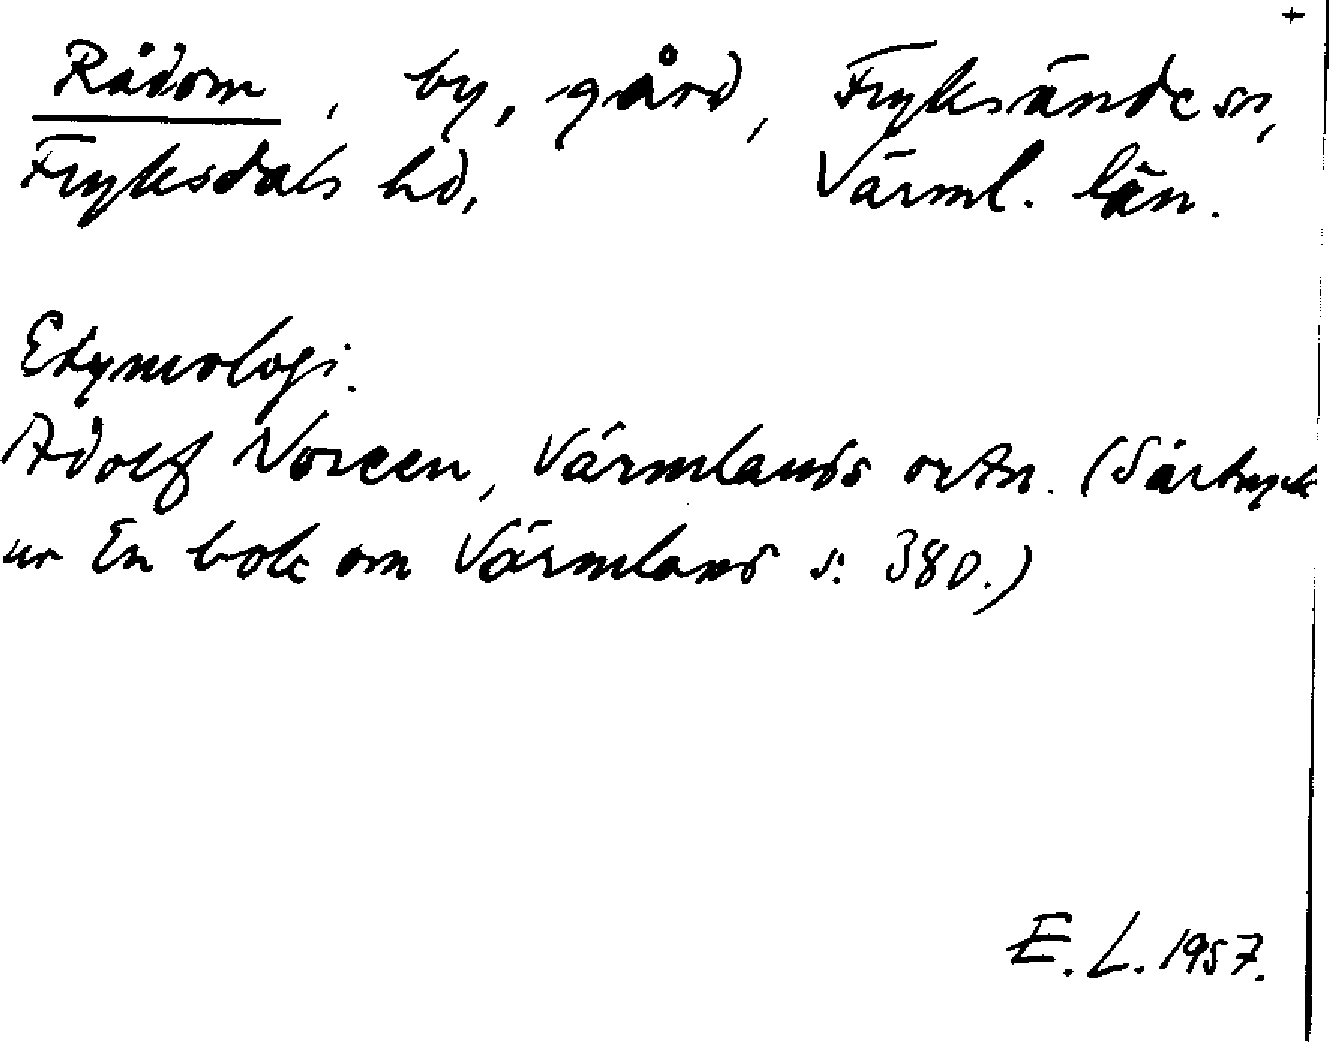 +
Rådom, by, gård, Fryksände sn,
Fryksdals hd, Värml. län.
Etymologi.
Adolf Noreen, Värmlands ortn. (Särtryck
ur En bok om Värmland s. 380.)
E. L. 1957.